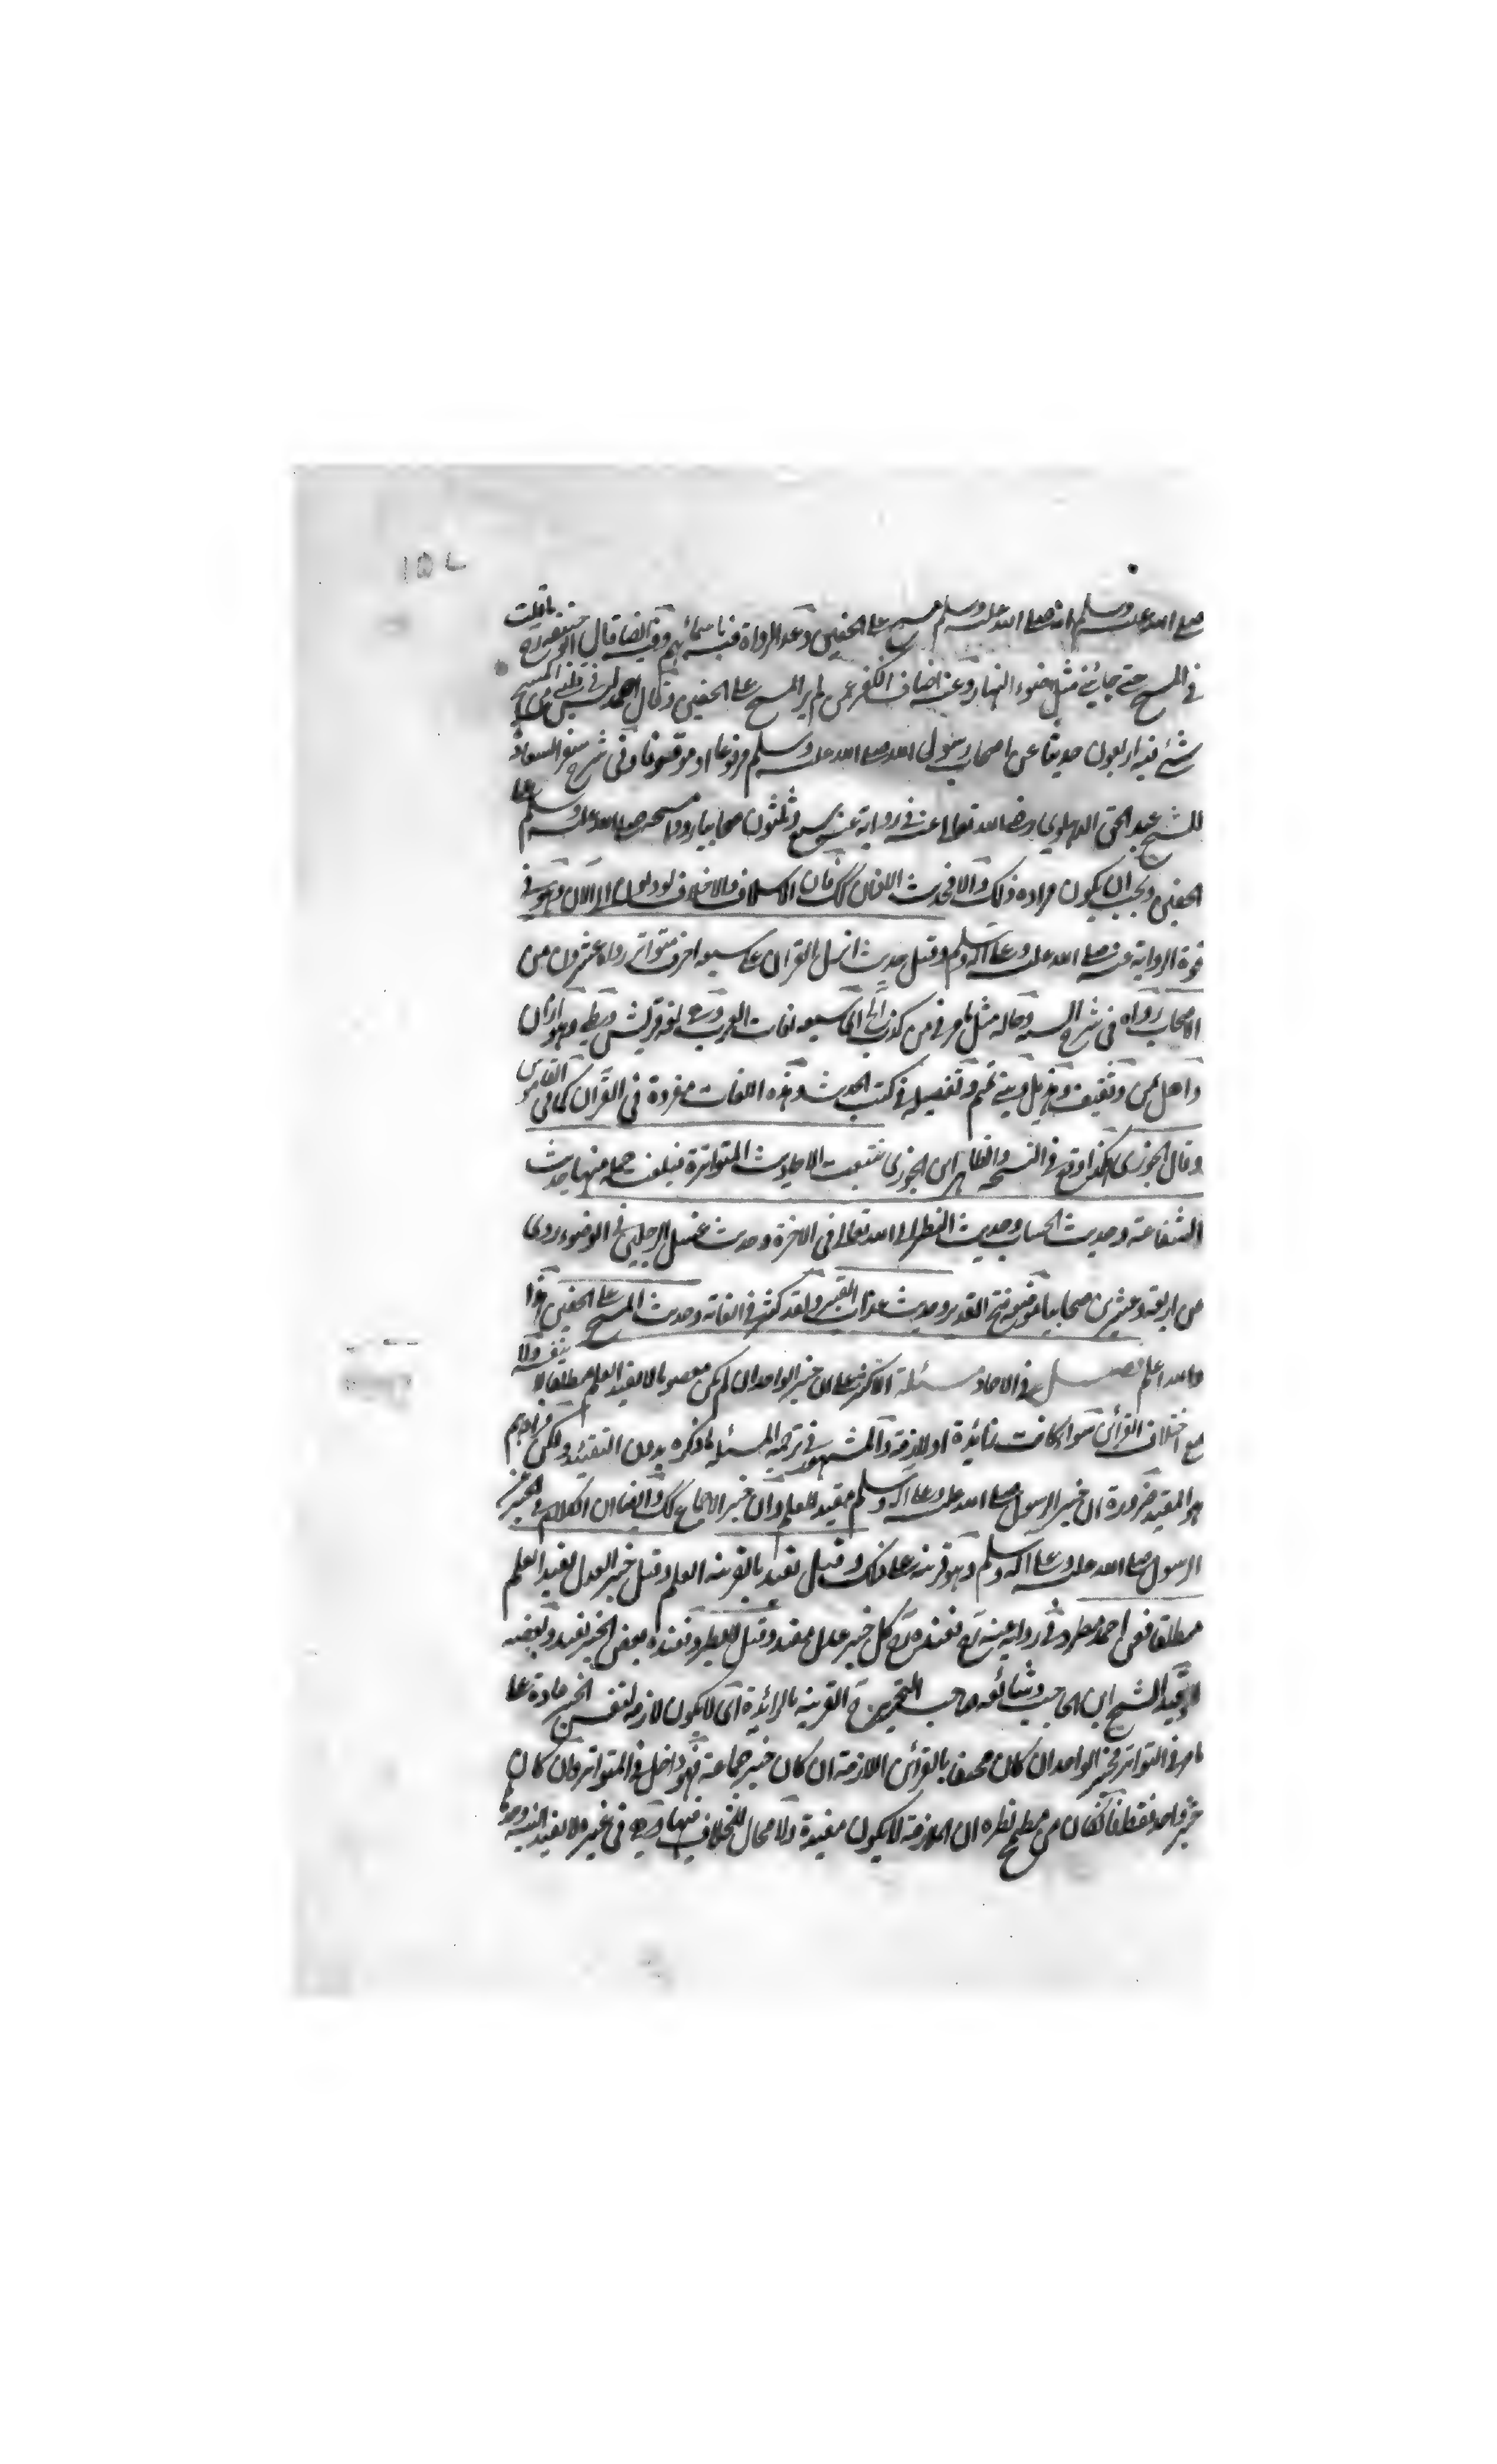 ١٥٧
صلى الله عليه وسلم انه صلى الله عليه وسلم مسح على الخفين وعد الرواة فيه باسمائهم وفيه ايضا قال ابو حنيفة رح ما قلت
في المسح حتى جاءني مثل ضوء النهار وعنه اخاف الكفر على من لم ير المسح على الخفين وقال احمد ليس في قلبي من المسح
شئ فيه اربعون حديثا عن اصحاب رسول الله صلى الله عليه وسلم مرفوعا او موقوفا وفي شرح سفر السعادة
للشيخ عبد الحق الدهلوي رضي الله تعالى عنه في رواية عينى سبع وثلثون صحابيا رووا مسحه صلى الله عليه وسلم على
الخفين ويجب ان يكون مراده ذلك والا فحديث اللعان كك فان الاسلاف والاخلاف الى الآن وهو في
قوة الرواية عنه صلى الله عليه وعلى آله وسلم وقيل حديث انزل القرآن على سبعة احرف متواتر رواه عشرون من
الاصحاب رواه في شرح السنة وحاله مثل ما مر في من كذب الخ السبعة لغات العرب وهي لغة قريش وطي وهوازن
واهل يمن وثقيف وهذيل وبني تميم وتفصيله في كتب الحديث وهذه اللغات مفردة في القرآن كما في القاموس
وقال الجوزي هكذا وقع في النسخ والظاهر ابن الجوزي تتبعت الاحاديث المتواترة فبلغت جملة منها حديث
الشفاعة وحديث الحساب وحديث النظر الى الله تعالى في الآخرة وحديث غسل الرجلين في الوضوء روى
عن اربعة وعشرين صحابيا فتح القدير وحديث عذاب القبر ولقد كثر في اثباته وحديث المسح على الخفين هذا
والله اعلم فصل في الآحاد مسئلة الاكثر على ان خبر الواحد ان لم يكن معصوما لا يفيد العلم مطلقا لا بنفسه ولا
مع اختلاف القرائن سواء كانت زائدة او لازمة والمشهور في ترجمة المسئلة ما ذكره بدون التقييد ولكن مرادهم
هو المقيد ضرورة ان خبر الرسول صلى الله عليه وعلى آله وسلم مفيد للعلم وان خبر الاجماع كك وايضا ان الكلام في الخبر عن
الرسول صلى الله عليه وعلى آله وسلم وهو قرينة على ذلك وقيل يفيد بالقرينة العلم وقيل خبر العدل يفيد العلم
مطلقا فعن احمد مطرد في رواية عينه رح كل خبر عدل مفيد وقيل لا يطرد بعض الخبر يفيد وبعضه
لا يفيد الشيخ ابن الحاجب صاحب التحرير القرينة بالزائدة اى لا يكون لازمة لنفس الخبر عادة على
ما مر في التواتر فخبر الواحد ان كان محفوفا بالقرائن اللازمة ان كان خبر جماعة فهو داخل في المتواتر وان كان
خبر واحد فقط فكان من مطمح نظره ان اللازمة لا يكون مفيدة ولا مجال للخلاف فيها في غيره ولا يفيد